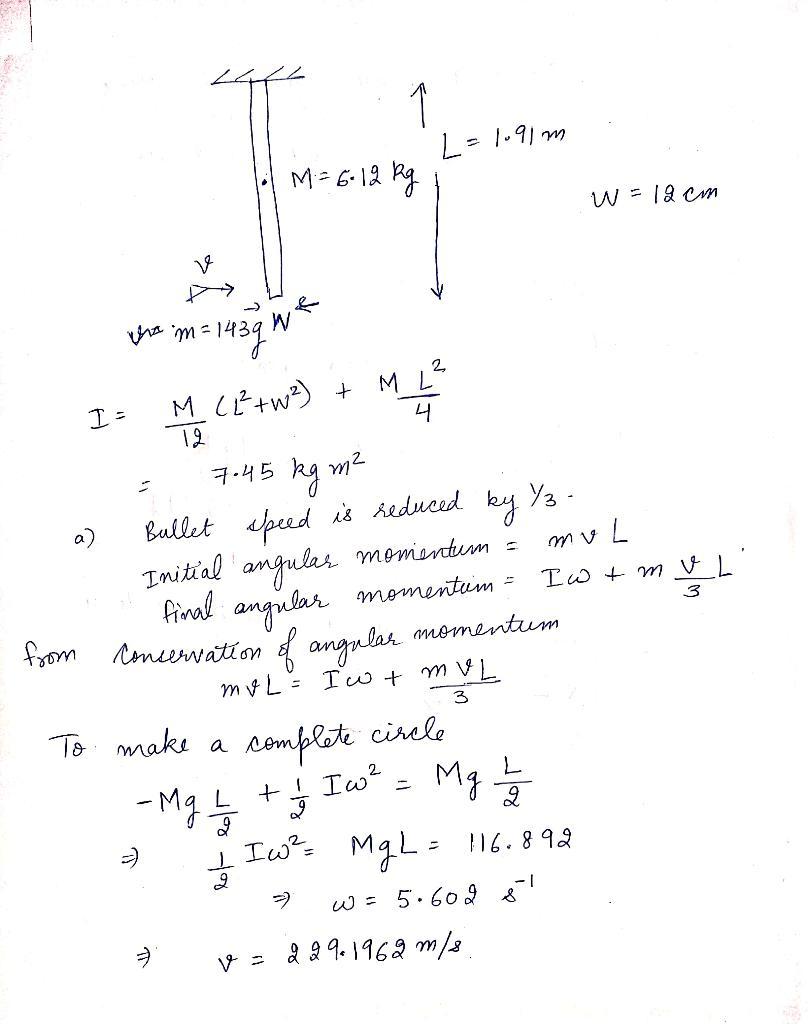 L = 1.91 m
M = 6.12 kg
W = 12 cm
v
m = 143g W
I = M/12 (L²+W²) + M L²/4
= 7.45 kg m²
a) Bullet speed is reduced by 1/3.
Initial angular momentum = m v L
final angular momentum = Iω + m v/3 L
from Conservation of angular momentum
m v L = Iω + m v L/3
To make a complete circle
-Mg L/2 + 1/2 Iω² = Mg L/2
⇒ 1/2 Iω² = MgL = 116.892
⇒ ω = 5.602 s⁻¹
⇒ v = 229.1962 m/s